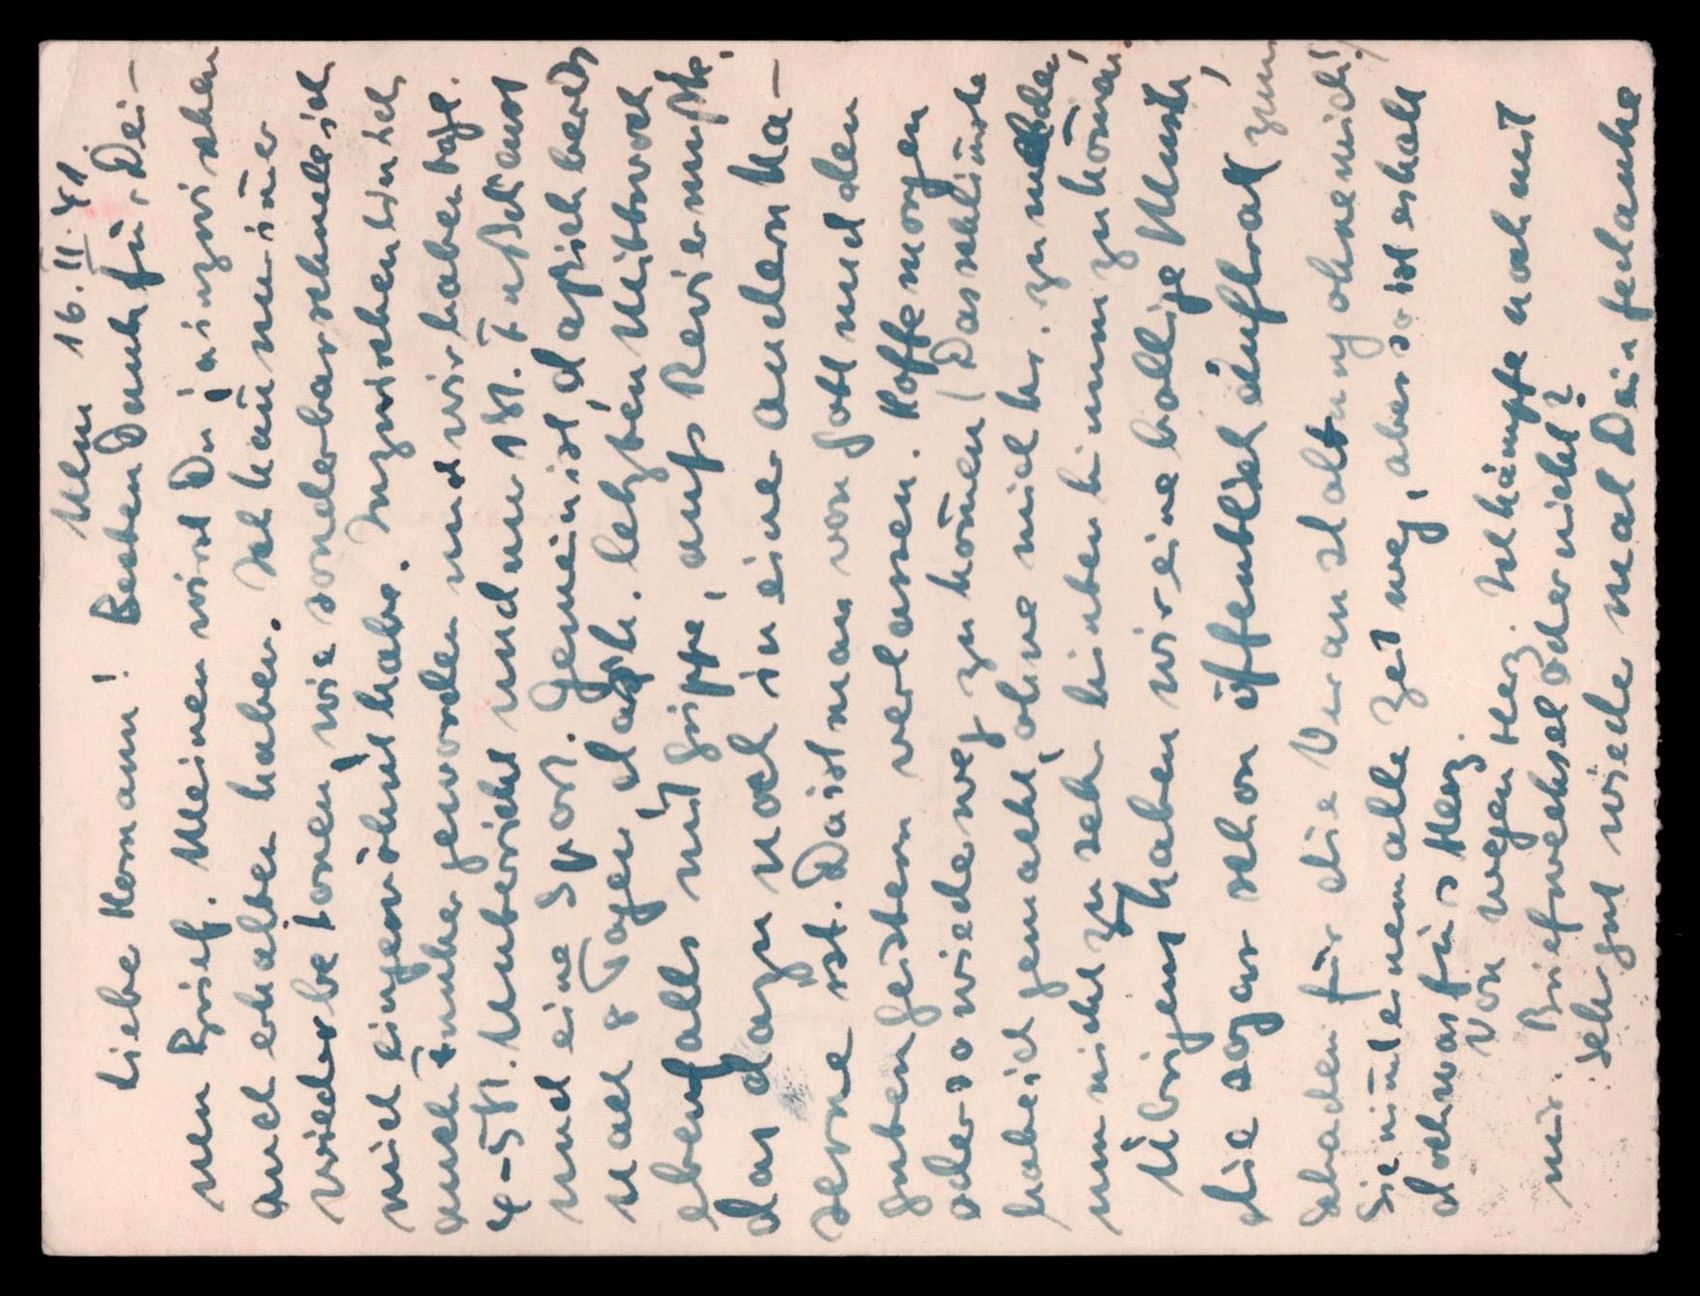 Ulm 16. II. 41.
Liebe Hermann! Besten Dank für Dei-
nen Brief. Meinen wirst Du ja inzwischen
auch erhalten haben. Ich kann nur immer
wieder betonen, wie sonderbar schnell ich
mich eingewöhnt habe. Inzwischen bin ich
auch Funker geworden und wir haben tägl.
4-5 St. Unterricht und nur 1 St. Fußdienst
und eine Sport. Gemein ist daß ich bereits
nach 8 Tagen, d. h. letzten Mittwoch
ebenfalls mit Grippe, aufs Revier mußte,
das dazu noch in einer andern Ka-
serne ist. Da ist man von Gott und den
guten Geistern verlassen. Hoffe morgen
oder so wieder weg zu kommen (Das schlimmste
habe ich gemacht, ohne mich kr. zu melden
um nicht zu sehr hinten hinum zu kommen.)
Übrigens haben wir eine bollige Musik,
die sogar schon öffentlich auftrat zum
Schaden für die Veranstaltung ohne mich!
Sie nimmt einem alle Zeit weg, aber so ist es halt
doch was fürs Herz.
Von wegen Herz. Ich kämpfe noch mit
mir. Briefwechsel oder nicht?
Sehr gut wieder mal Dein Gedanke